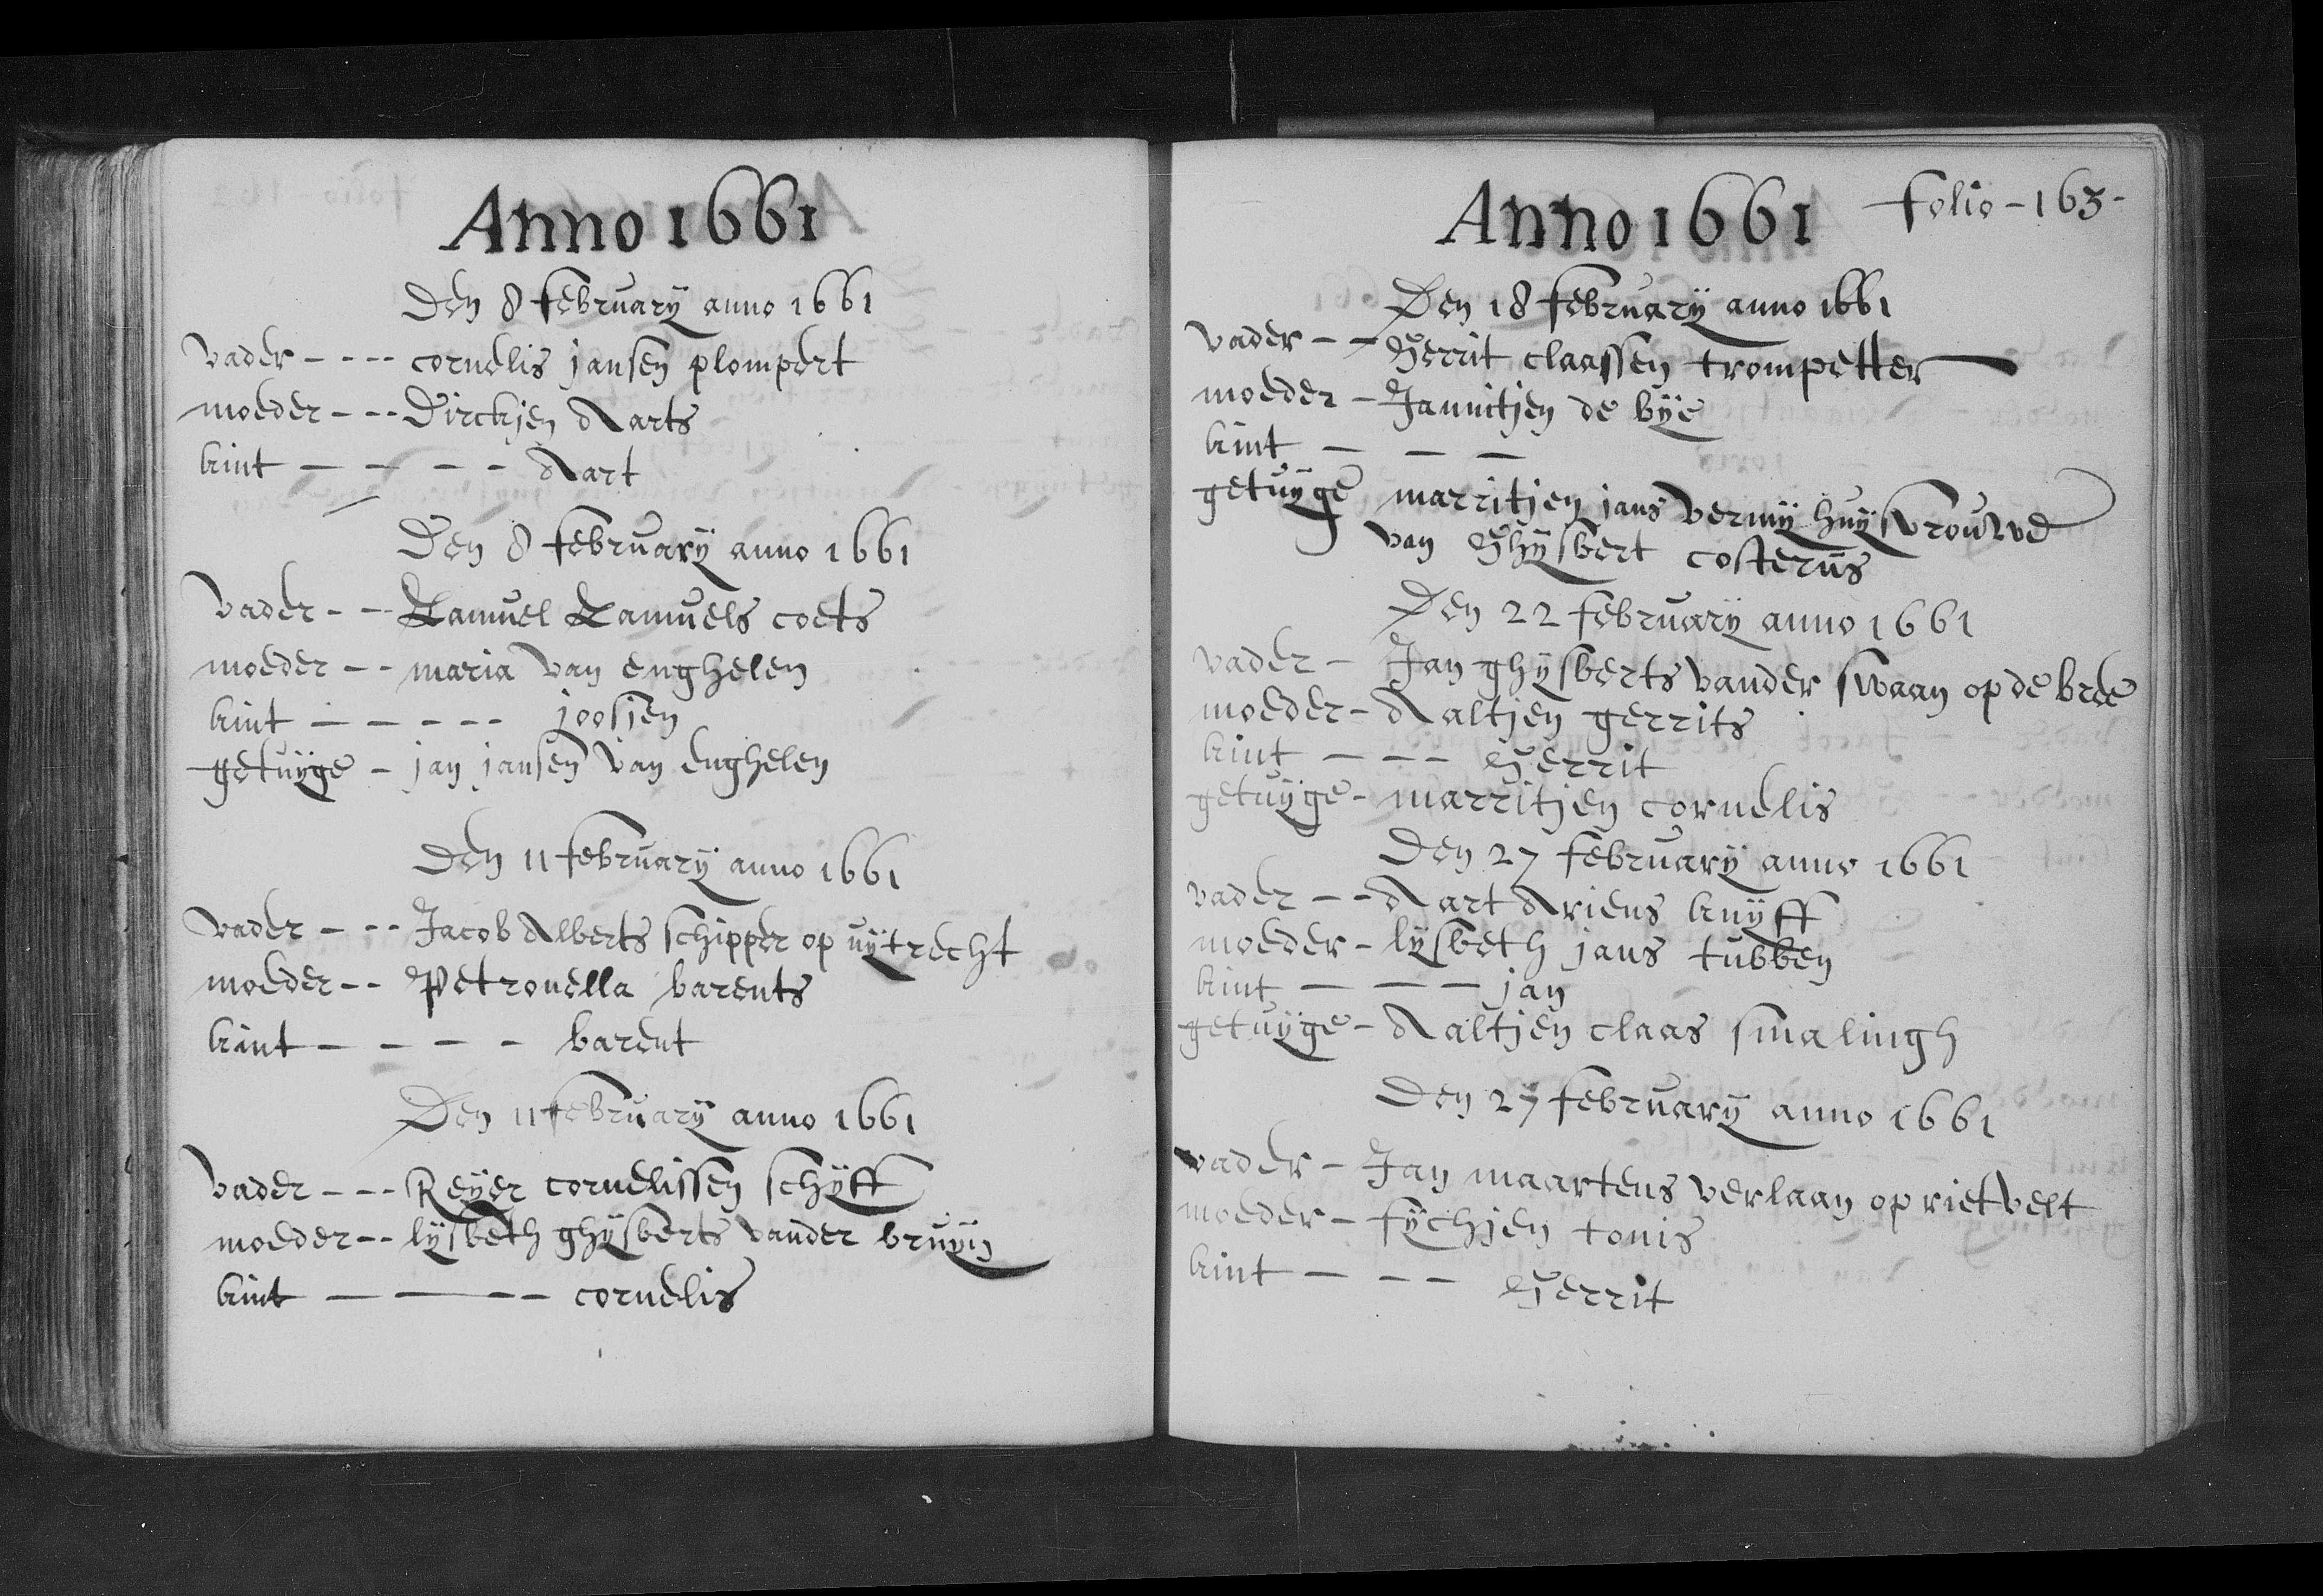 Anno 1661
Den 8 february anno 1661
vader - - - - cornelis jansen plompert
moeder - - - Dirckjen Aarts
kint - - - - Aart
Den 8 february anno 1661
vader - - - Samuel Samuels coets
moeder - - maria van enghelen
kint - - - - - joosjen
getuijge - jan jansen van enghelen
Den 11 february anno 1661
vader - - - Jacob Alberts schipper op uijtrecht
moeder - - Petronella barents
kint - - - - barent
Den 11 february anno 1661
vader - - - Reijer cornelissen schijff
moeder - - lijsbeth ghijsberts vander bruijn
kint - - - - cornelis
Anno 1661 folio - 163 -
Den 18 february anno 1661
vader - - Gerrit claassen trompetter
moeder - Jannitjen de bije
kint - - -
getuijge marritjen jans vermij huijsvrouwe
van Ghijsbert costerus
Den 22 february anno 1661
vader - Jan ghijsberts vander swaan op de bree
moeder - Aaltjen gerrits
kint - - - Gerrit
getuijge - marritjen cornelis
Den 27 february anno 1661
vader - - Aart Ariens knijff
moeder - lijsbeth jans tubben
kint - - - jan
getuijge - Aaltjen claas smalingh
Den 27 february anno 1661
vader - Jan maartens verlaan op rietvelt
moeder - fijchjen tonis
kint - - - Gerrit